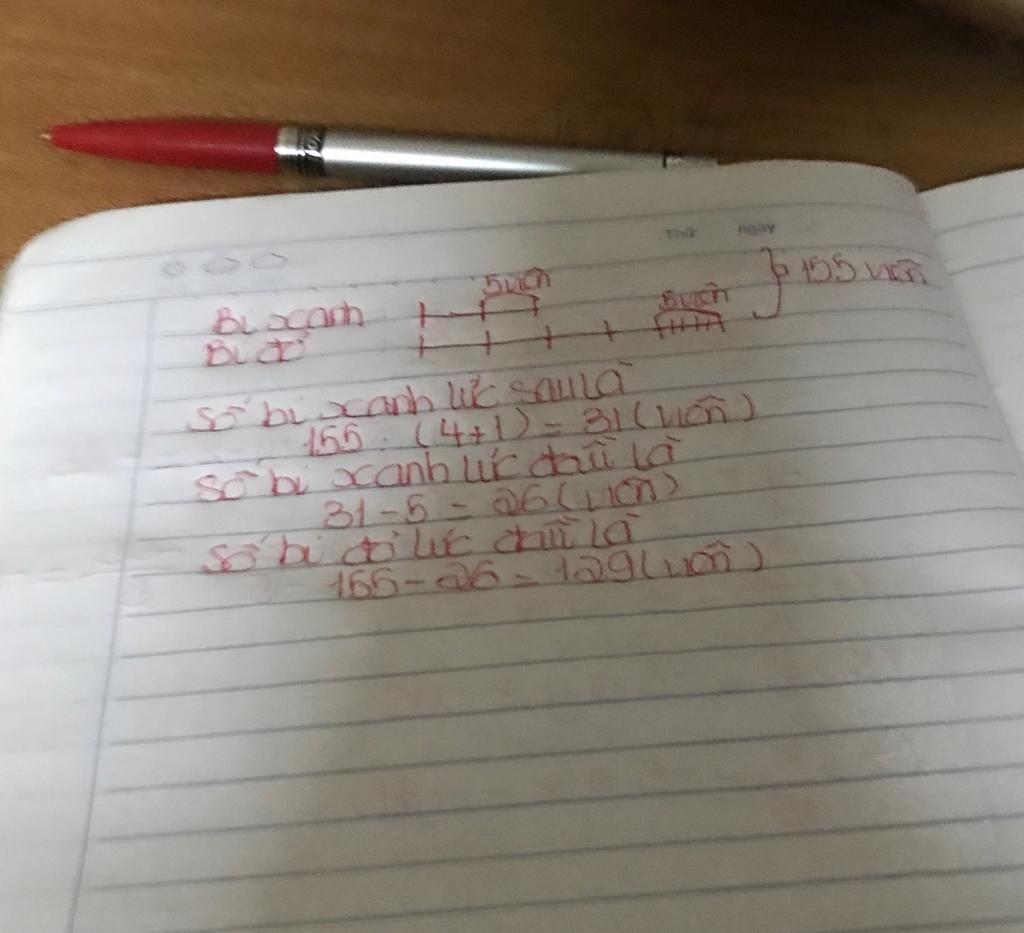 Thứ ngày
5 viên
Bi xanh 5 viên 155 viên
Bi đỏ
Số bi xanh lúc sau là
155 : (4+1) = 31 (viên)
Số bi xanh lúc đầu là
31 - 5 = 26 (viên)
Số bi đỏ lúc đầu là
155 - 26 = 129 (viên)